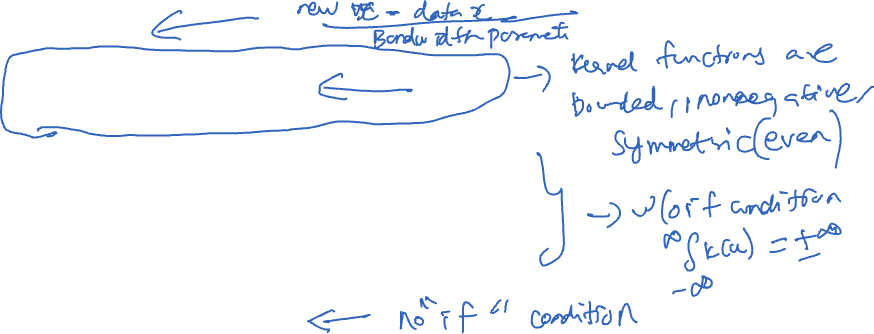 new x - data x
Bandwidth parameti
Kernel functions are
bounded, nonnegative,
symmetric (even)
→ w/o if condition
∞∫k(u) = ±∞
-∞
← no "if" condition